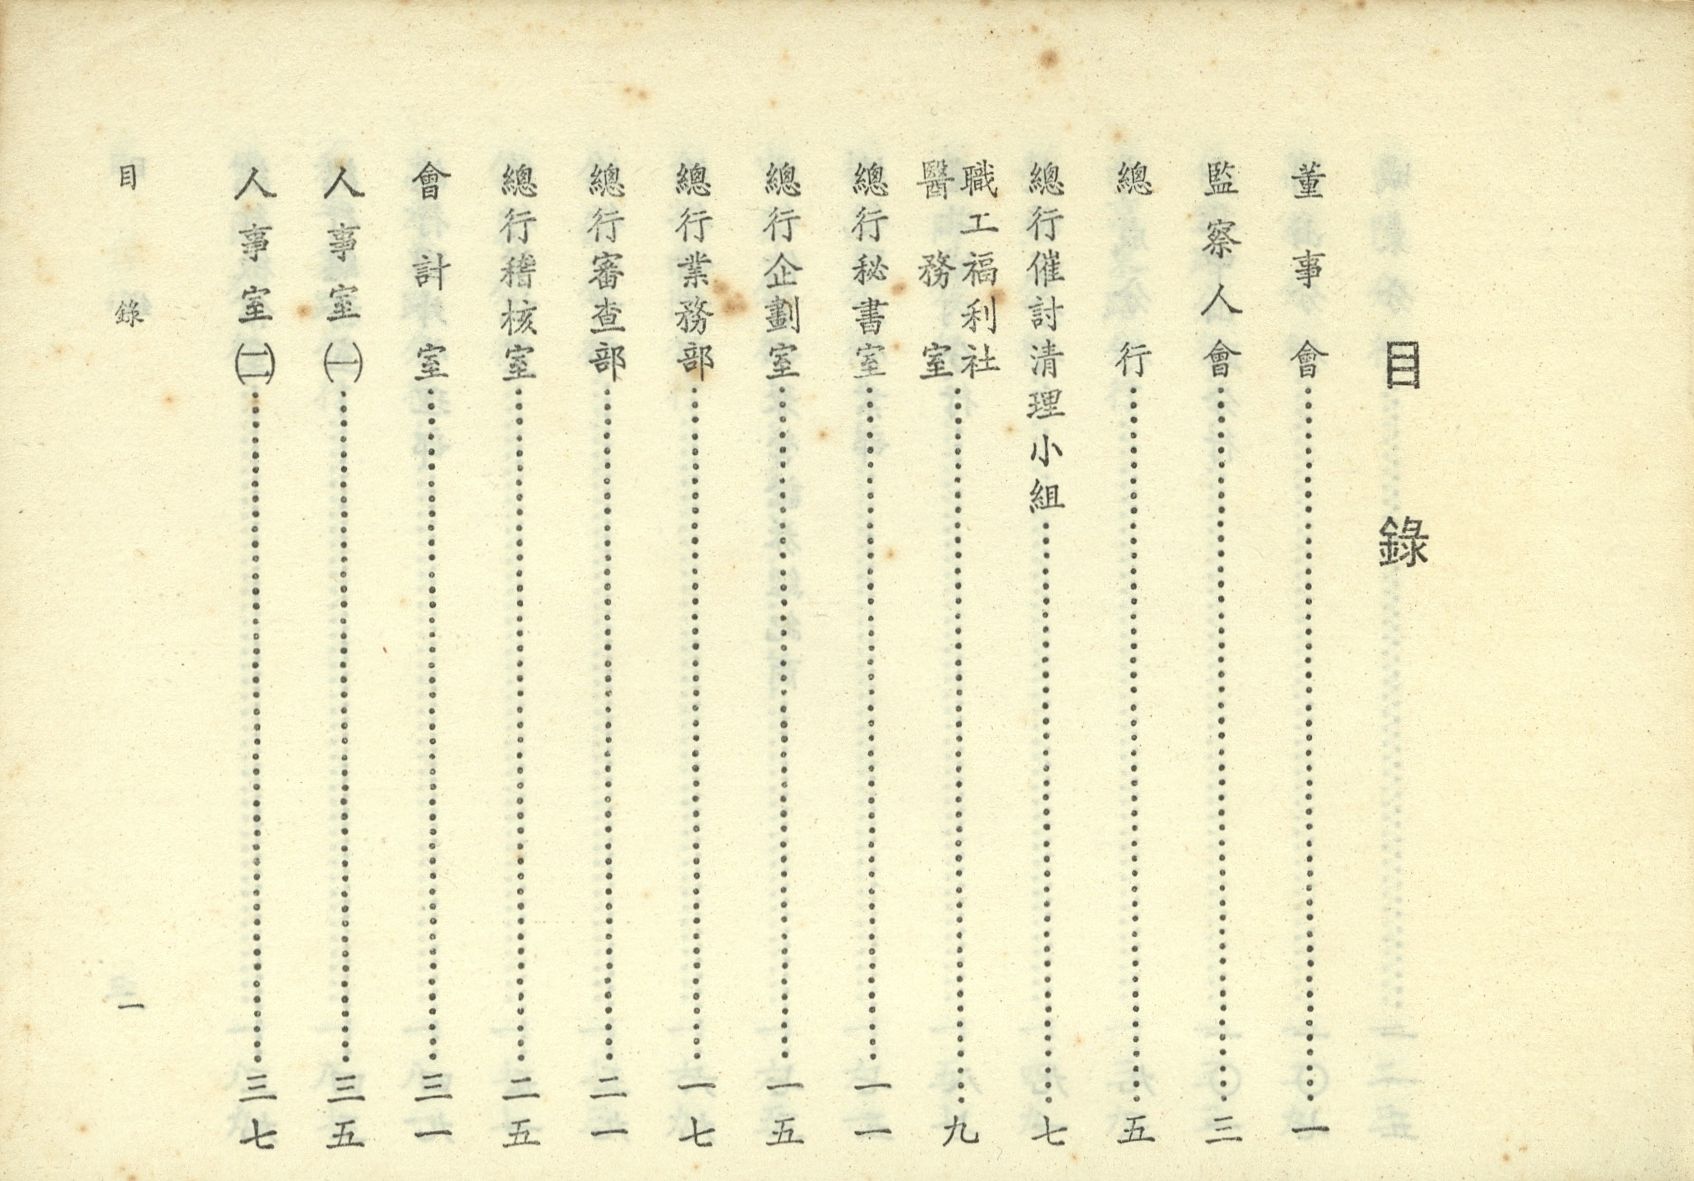 目錄
董事會⋯⋯一
監察人會⋯⋯三
總行⋯⋯五
總行催討清理小組⋯⋯七
職工福利社
醫務室⋯⋯九
總行秘書室⋯⋯一一
總行企劃室⋯⋯一五
總行業務部⋯⋯一七
總行審查部⋯⋯二一
總行稽核室⋯⋯二五
會計室⋯⋯三一
人事室㈠⋯⋯三五
人事室㈡⋯⋯三七
目錄 一